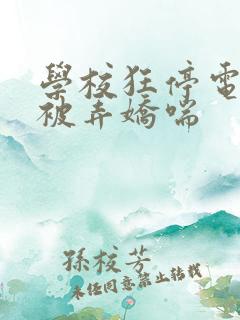 學校狂停電
被弄嬌喘
孫校芳
未经同意禁止转载